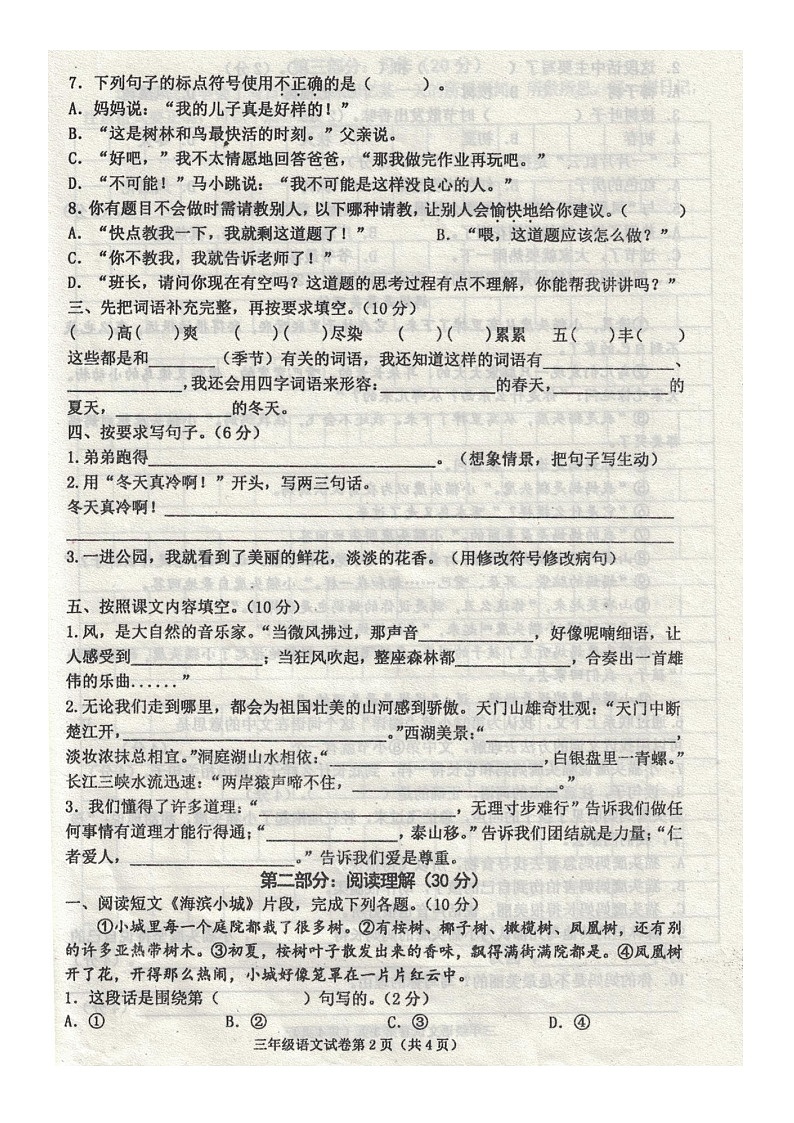 7．下列句子的标点符号使用不正确的是（　　）。
A．妈妈说：“我的儿子真是好样的！”
B．“这是树林和鸟最快活的时刻。”父亲说。
C．“好吧，”我不太情愿地回答爸爸，“那我做完作业再玩吧。”
D．“不可能！”马小跳说：“我不可能是这样没良心的人。”
8.你有题目不会做时需请教别人，以下哪种请教，让别人会愉快地给你建议。（　　）
A．“快点教我一下，我就剩这道题了！”　　B．“喂，这道题应该怎么做？”
C．“你不教我，我就告诉老师了！”
D．“班长，请问你现在有空吗？这道题的思考过程有点不理解，你能帮我讲讲吗？”
三、先把词语补充完整，再按要求填空。（10分）
（　）高（　）爽　（　）（　）尽染　（　）（　）累累　五（　）丰（　）
这些都是和________（季节）有关的词语，我还知道这样的词语有____________、
____________,我还会用四字词语来形容：____________的春天，____________的
夏天，____________的冬天。
四、按要求写句子。（6分）
1.弟弟跑得______________________________。（想象情景，把句子写生动）
2.用“冬天真冷啊！”开头，写两三句话。
冬天真冷啊！____________________________________________________
______________________________________________________________
3.一进公园，我就看到了美丽的鲜花，淡淡的花香。（用修改符号修改病句）
五、按照课文内容填空。（10分）
1.风，是大自然的音乐家。“当微风拂过，那声音____________，好像呢喃细语，让
人感受到______________；当狂风吹起，整座森林都____________，合奏出一首雄
伟的乐曲......”
2.无论我们走到哪里，都会为祖国壮美的山河感到骄傲。天门山雄奇壮观：“天门中断
楚江开，______________________________。”西湖美景：“____________________,
淡妆浓抹总相宜。”洞庭湖山水相依：“______________________,白银盘里一青螺。”
长江三峡水流迅速：“两岸猿声啼不住，______________________。”
3．我们懂得了许多道理：“____________________，无理寸步难行”告诉我们做任
何事情有道理才能行得通；“______________，泰山移。”告诉我们团结就是力量；“仁
者爱人，______________。”告诉我们爱是尊重。
第二部分：阅读理解（30分）
一、阅读短文《海滨小城》片段，完成下列各题。（10分）
①小城里每一个庭院都栽了很多树。②有桉树、椰子树、橄榄树、凤凰树，还有别
的许多亚热带树木。③初夏，桉树叶子散发出来的香味，飘得满街满院都是。④凤凰树
开了花，开得那么热闹，小城好像笼罩在一片片红云中。
1．这段话是围绕第（　　　）句写的。（2分）
A．①　　　B．②　　　C．③　　　D．④
三年级语文试卷第2页（共4页）